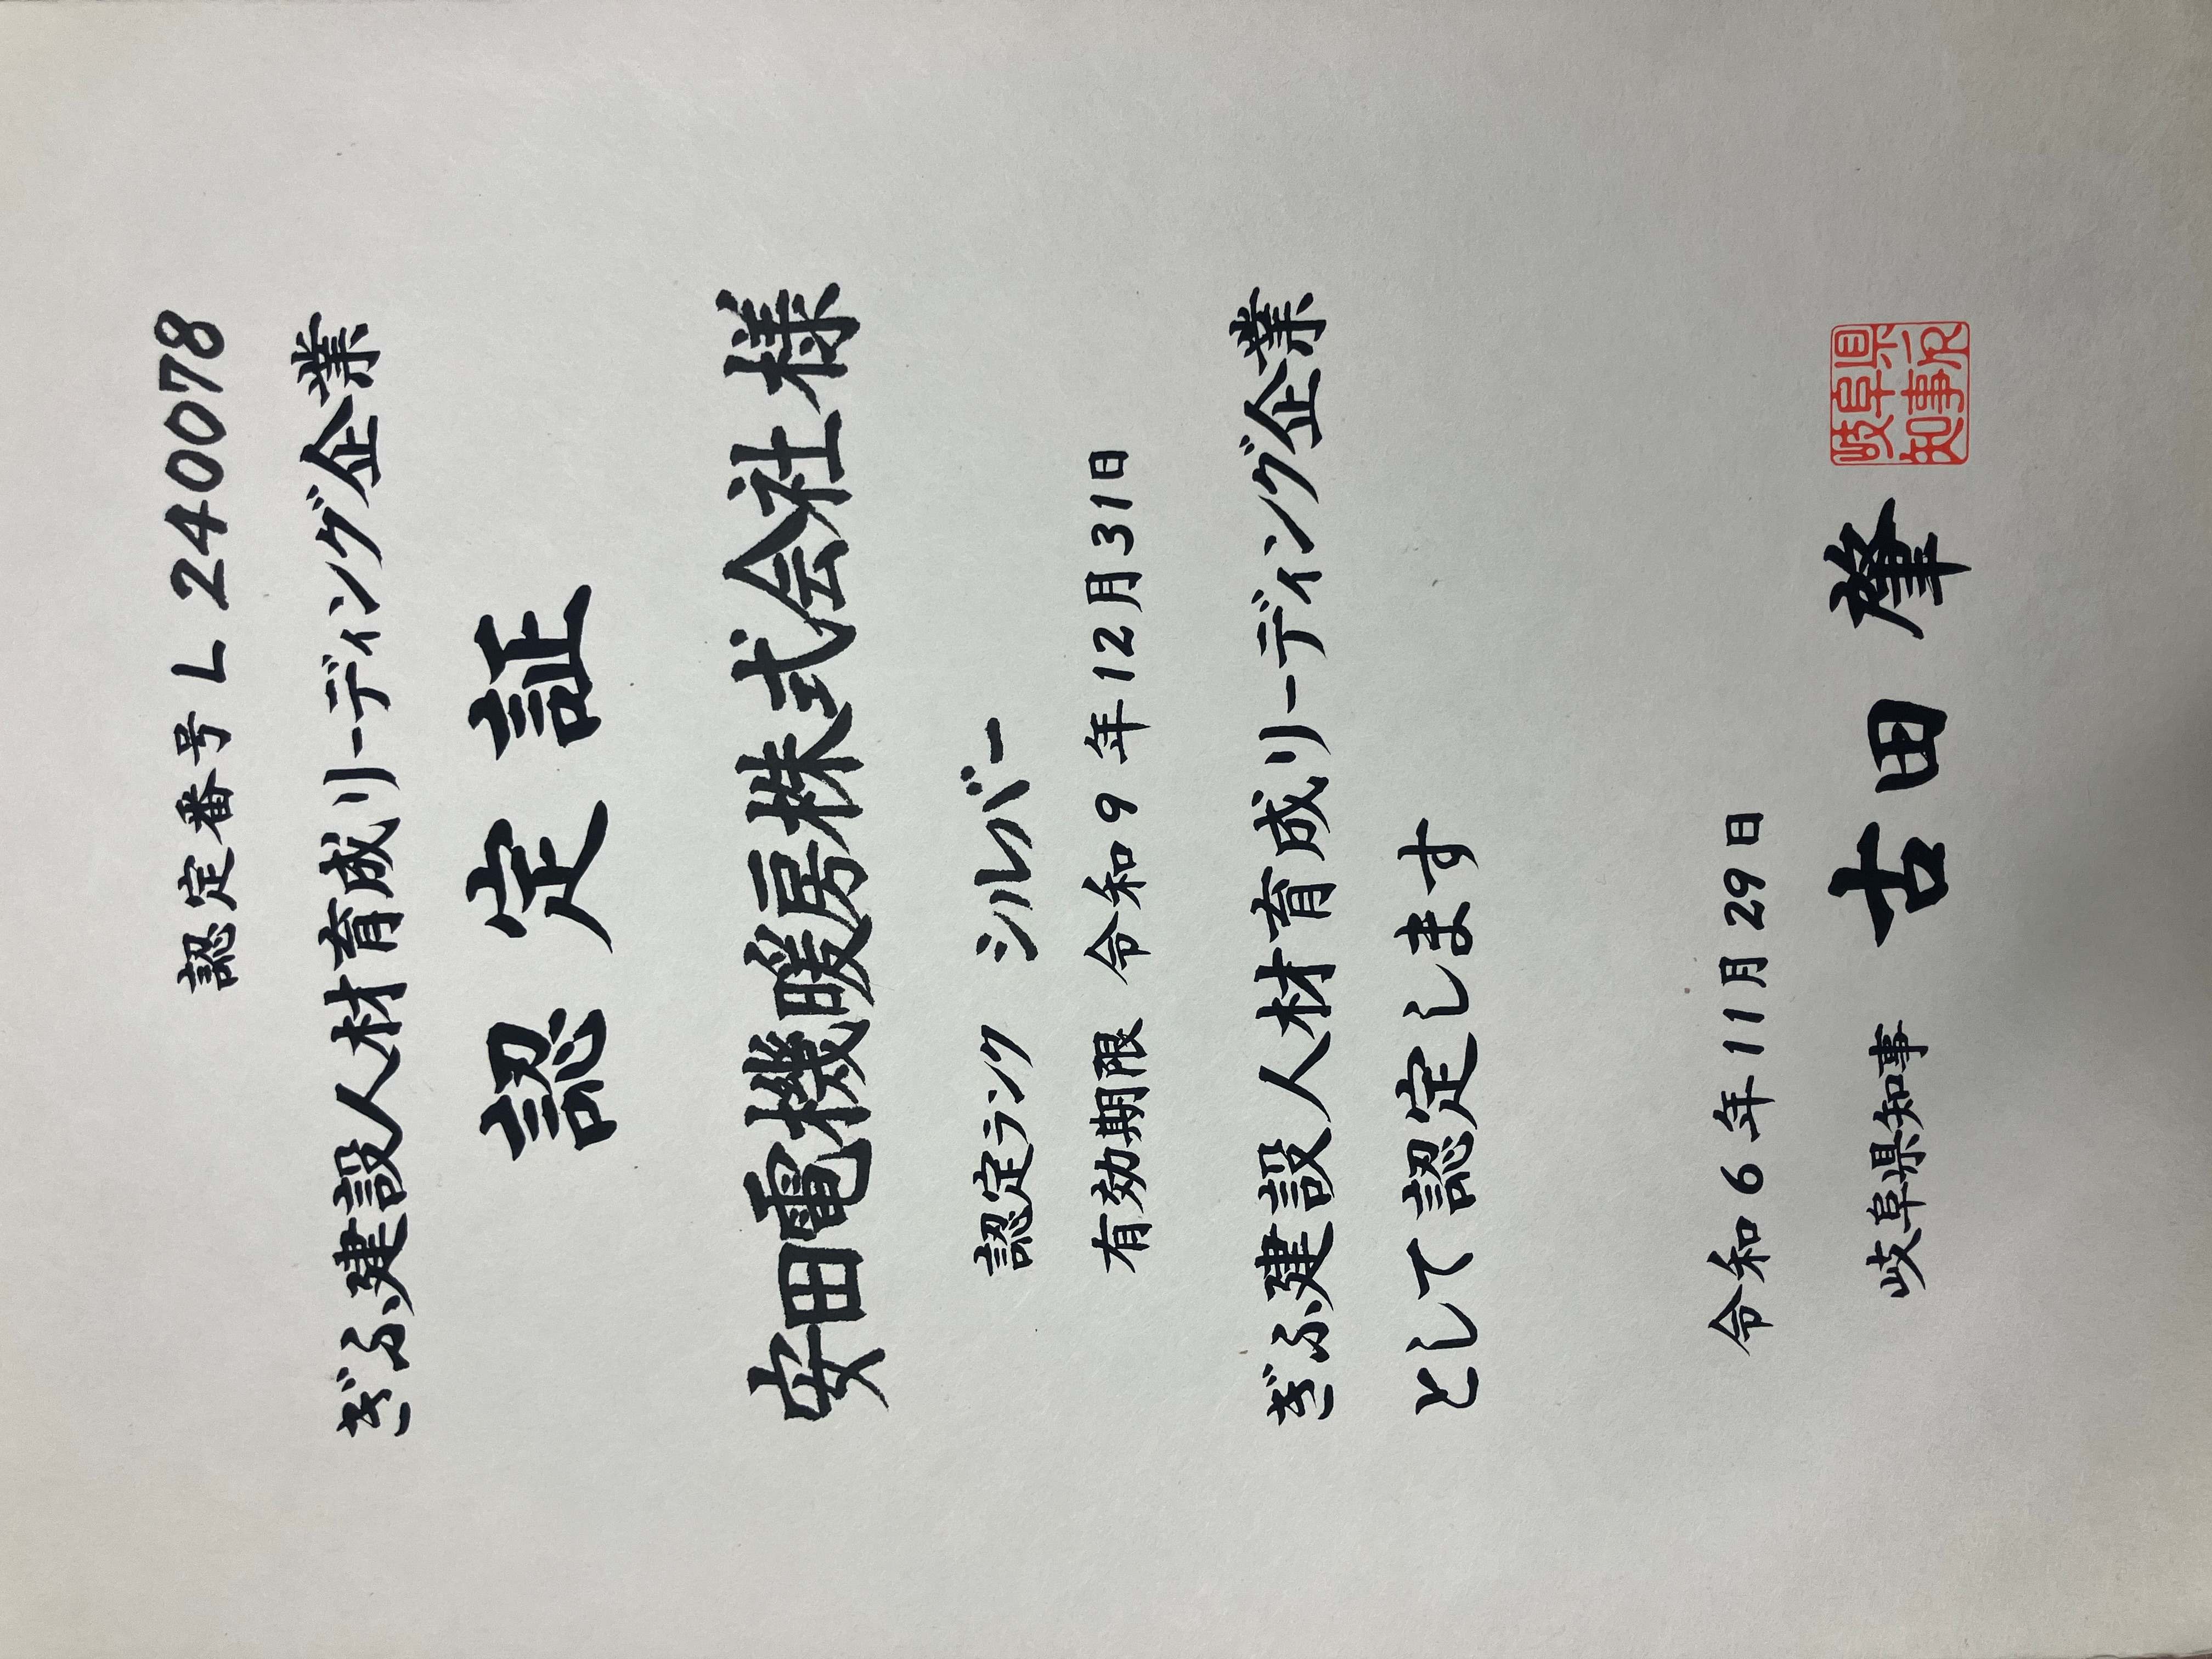 認定番号 L 240078
ぎふ建設人材育成リーディング企業
認定証
安田電機暖房株式会社様
認定ランク シルバー
有効期限 令和9年12月31日
ぎふ建設人材育成リーディング企業
として認定します
令和6年11月29日
岐阜県知事 古田 肇
岐阜県
知事之印